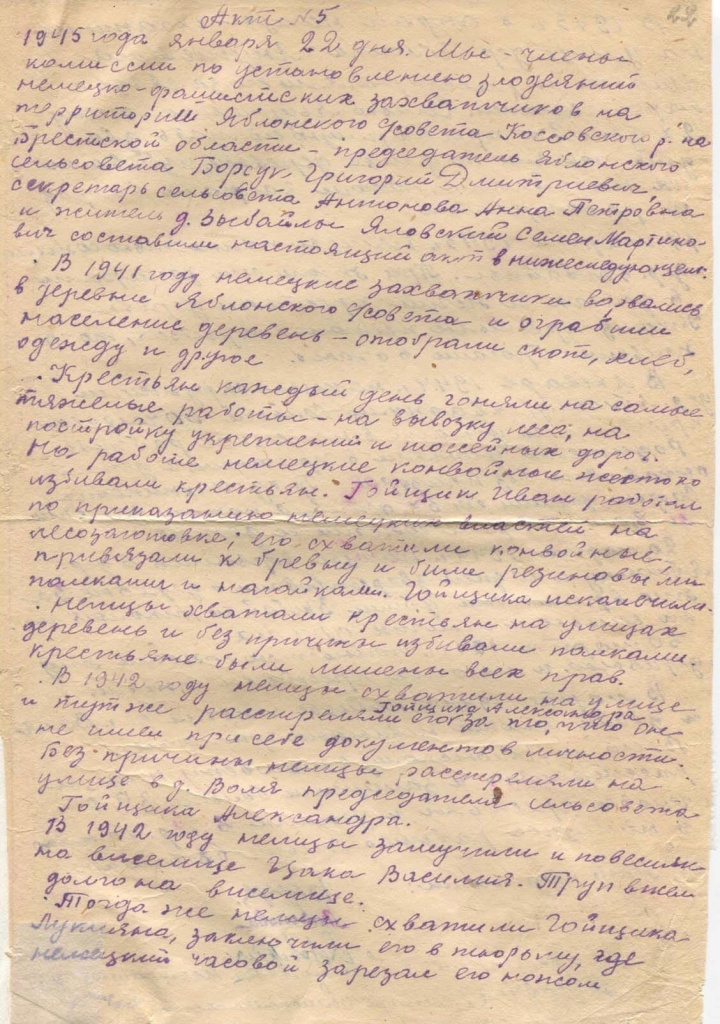 22
Акт №5
1945 года января 22 дня. Мы - члены
комиссии по установлению злодеяний
немецко-фашистских захватчиков на
территории Яблонского с/совета Коссовского р-на
Брестской области - председатель Яблонского
сельсовета Борсук Григорий Дмитриевич,
секретарь сельсовета Антонова Анна Петровна
и житель д. Зыбайлы Яловский Семен Мартино-
вич составили настоящий акт в нижеследующем.
В 1941 году немецкие захватчики ворвались
в деревни Яблонского с/совета и ограбили
население деревень - отобрали скот, хлеб,
одежду и другое
Крестьян каждый день гоняли на самые
тяжелые работы - на вывозку леса, на
постройку укреплений и шоссейных дорог.
На работе немецкие конвойные жестоко
избивали крестьян. Гойщик Иван работал
по приказанию немецких властей на
лесозаготовке; его схватили конвойные,
привязали к бревну и били резиновыми
палками и нагайками. Гойщика искалечили.
Немцы хватали крестьян на улицах
деревень и без причин избивали палками.
Крестьяне были лишены всех прав.
В 1942 году немцы схватили на улице
Гойщика Александра
и тут же расстреляли его за то, что он
не имел при себе документов личности.
Без причины немцы расстреляли на
улице в д. Воля председателя сельсовета
Гойщика Александра.
В 1942 году немцы замучили и повесили
на виселице Цака Василия. Труп висел
долго на виселице.
Тогда же немцы схватили Гойщика
Лукьяна, заключили его в тюрьму, где
немецкий часовой зарезал его ножом